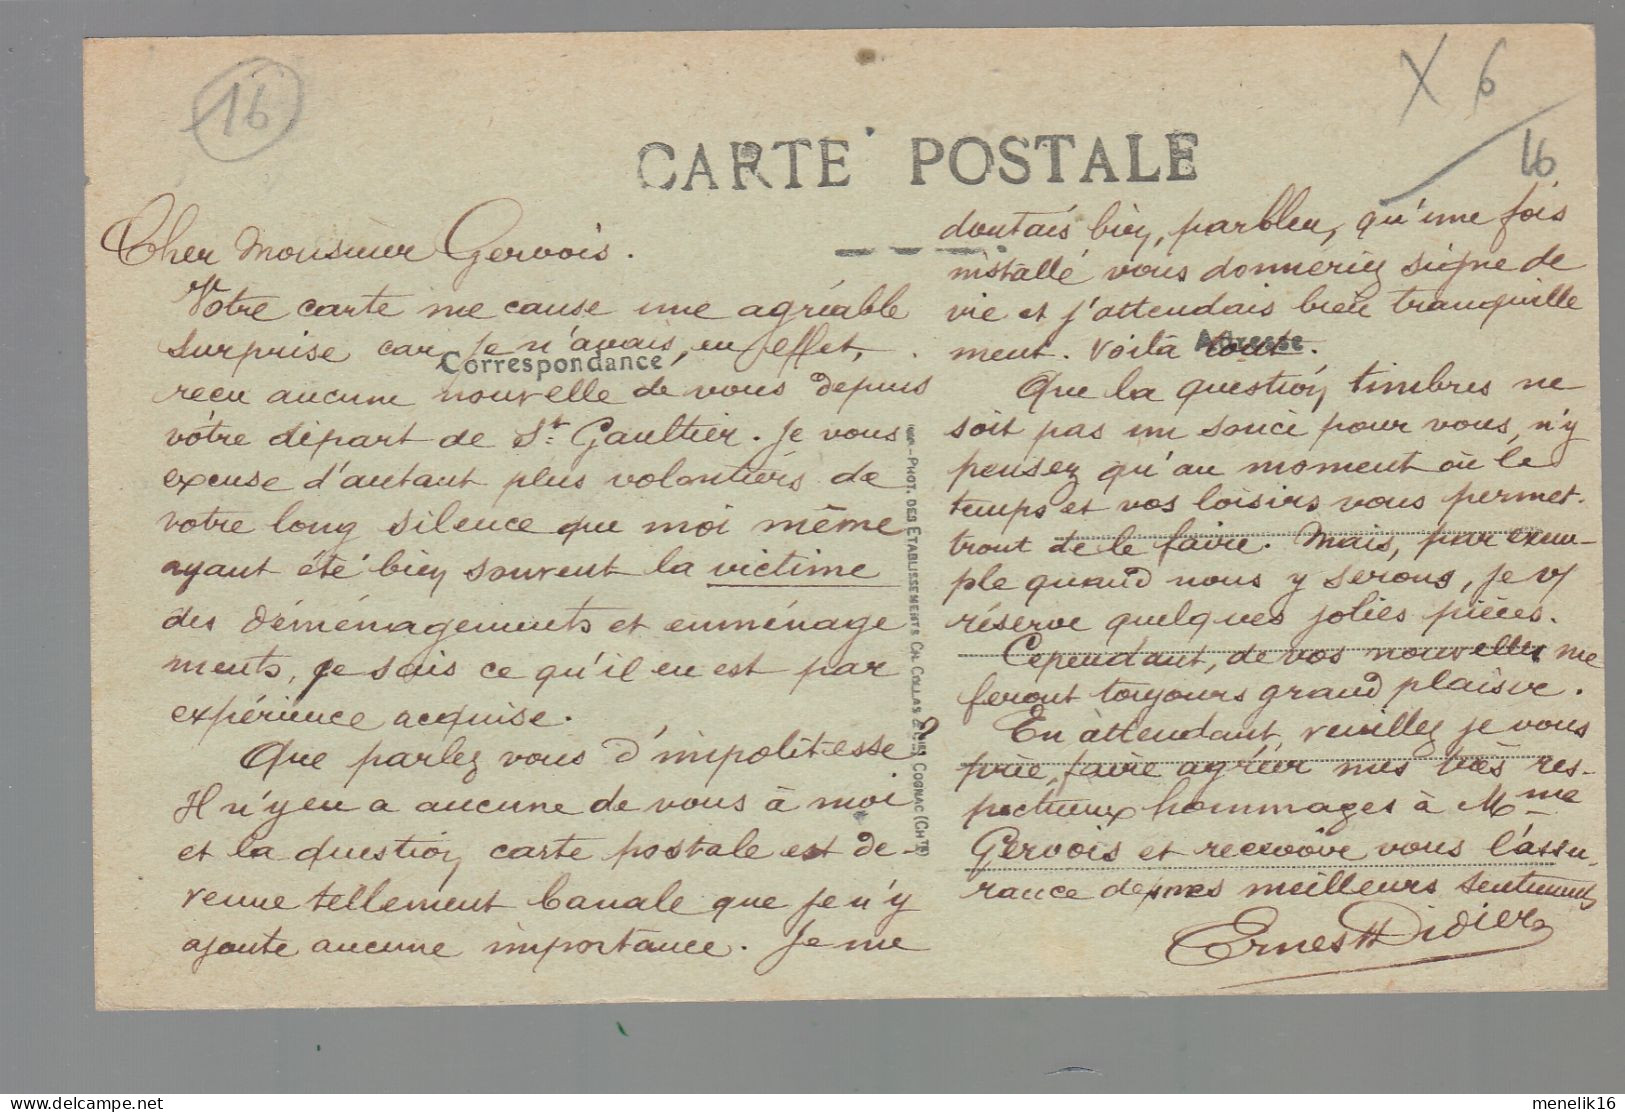 16
X 6
16
CARTE POSTALE
Correspondance
Adresse
Cher Monsieur Gervois.
Votre carte me cause une agréable
surprise car je n'avais, en effet,
reçu aucune nouvelle de vous depuis
vôtre départ de St Gaultier. Je vous
excuse d'autant plus volontiers de
votre long silence que moi même
ayant été bien souvent la victime
des déménagements et emménage
ments, je sais ce qu'il en est par
expérience acquise.
Que parlez vous d'impolitesse ?
Il n'y en a aucune de vous à moi
et la question carte postale est de-
venue tellement banale que je n'y
ajoute aucune importance. Je me
doutais bien, parbleu, qu'une fois
installé vous donneriez signe de
vie et j'attendais bien tranquille
ment. Voilà tout.
Que la question timbres ne
soit pas un souci pour vous, n'y
pensez qu'au moment où le
temps et vos loisirs vous permet-
tront de le faire. Mais, par exem-
ple quand nous y serons, je v/
réserve quelques jolies pièces.
Cependant, de vos nouvelles me
feront toujours grand plaisir.
En attendant, veuillez je vous
prie, faire agréer mes très res-
pectueux hommages à Mme
Gervois et recevoir vous l'assu-
rance de mes meilleurs sentiments
Ernest Didier
PHOT. DES ETABLISSEMENTS CH. COLLAS & Cie, COGNAC (CHTE)
menelik16